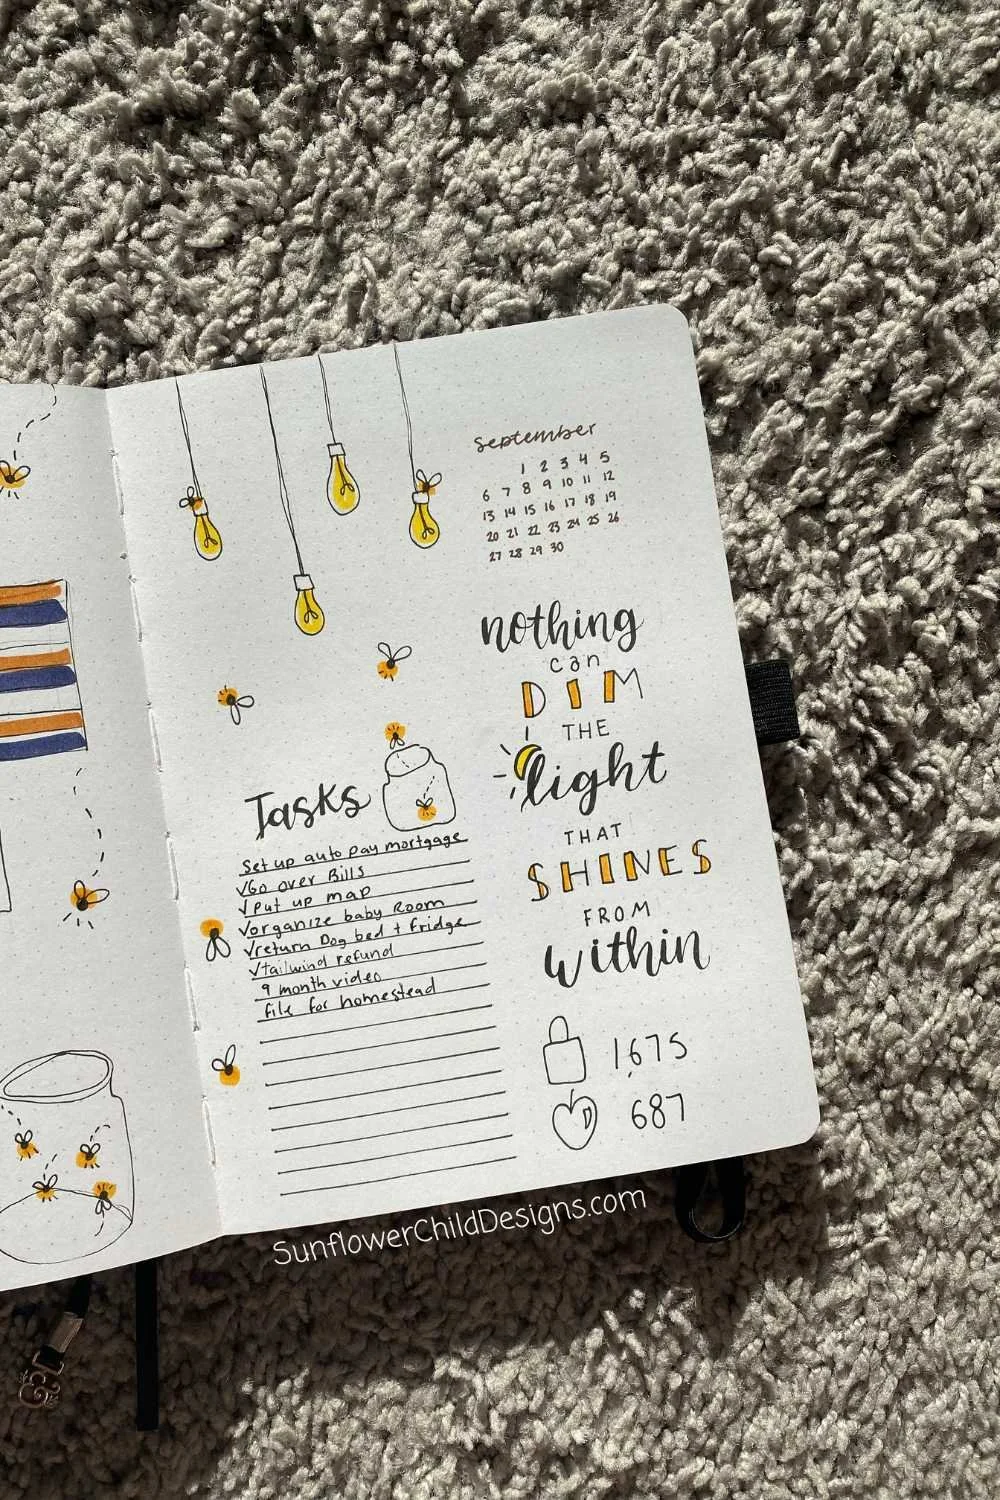 September
1 2 3 4 5
6 7 8 9 10 11 12
13 14 15 16 17 18 19
20 21 22 23 24 25 26
27 28 29 30
nothing
can
DIM
THE
light
THAT
SHINES
FROM
within
1675
687
Tasks
Set up auto pay mortgage
✓Go over Bills
✓Put up map
✓organize baby Room
✓return Dog bed + fridge
✓tailwind refund
9 month video
file for homestead
SunflowerChildDesigns.com